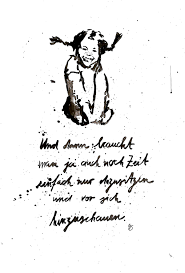 Und dann braucht
man ja auch noch Zeit
einfach nur dazusitzen
und vor sich
hinzuschauen.